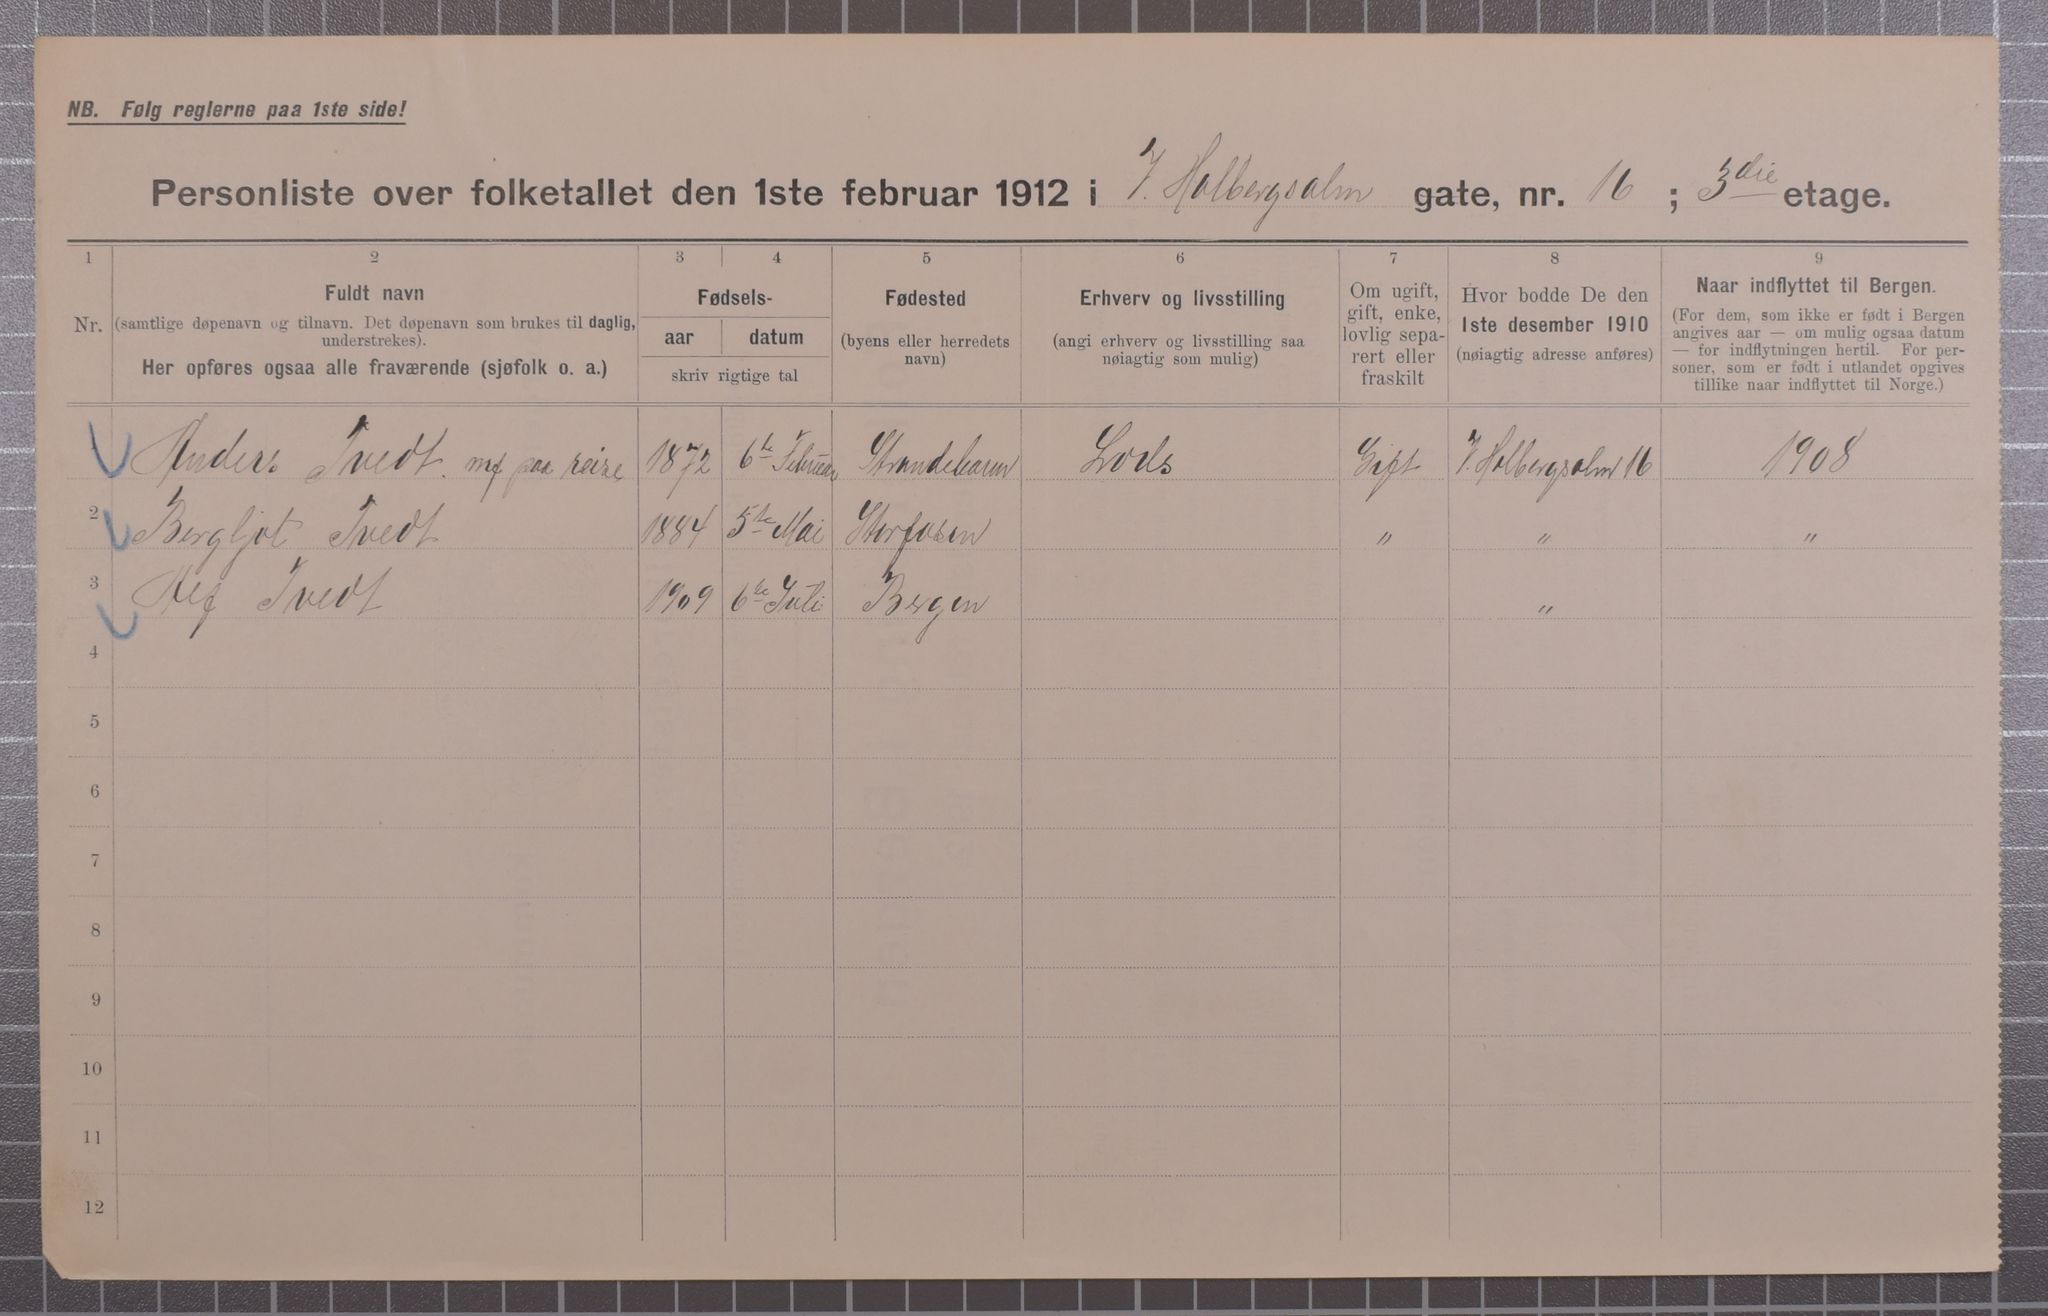 NB. Følg reglerne paa 1ste side!
Personliste over folketallet den 1ste februar 1912 i V. Holbergsalm gate, nr. 16 ; 3die etage.
1 2 3 4 5 6 7 8 9
Nr.
Fuldt navn
(samtlige døpenavn og tilnavn. Det døpenavn som brukes til daglig,
understrekes).
Her opføres ogsaa alle fraværende (sjøfolk o. a.)
Fødsels-
aar datum
skriv rigtige tal
Fødested
(byens eller herredets
navn)
Erhverv og livsstilling
(angi erhverv og livsstilling saa
nøiagtig som mulig)
Om ugift,
gift, enke,
lovlig sepa-
rert eller
fraskilt
Hvor bodde De den
1ste desember 1910
(nøiagtig adresse anføres)
Naar indflyttet til Bergen.
(For dem, som ikke er født i Bergen
angives aar — om mulig ogsaa datum
— for indflytningen hertil. For per-
soner, som er født i utlandet opgives
tillike naar indflyttet til Norge.)
Anders Tvedt. paa reise 1872 6te Februar Strandebarm Lods Gift V. Holbergsalm 16 1908
2 Bergljot Tvedt 1884 5te Mai Storfosen " " "
3 Alf Tvedt 1909 6te Juli Bergen "
4
5
6
7
8
9
10
11
12